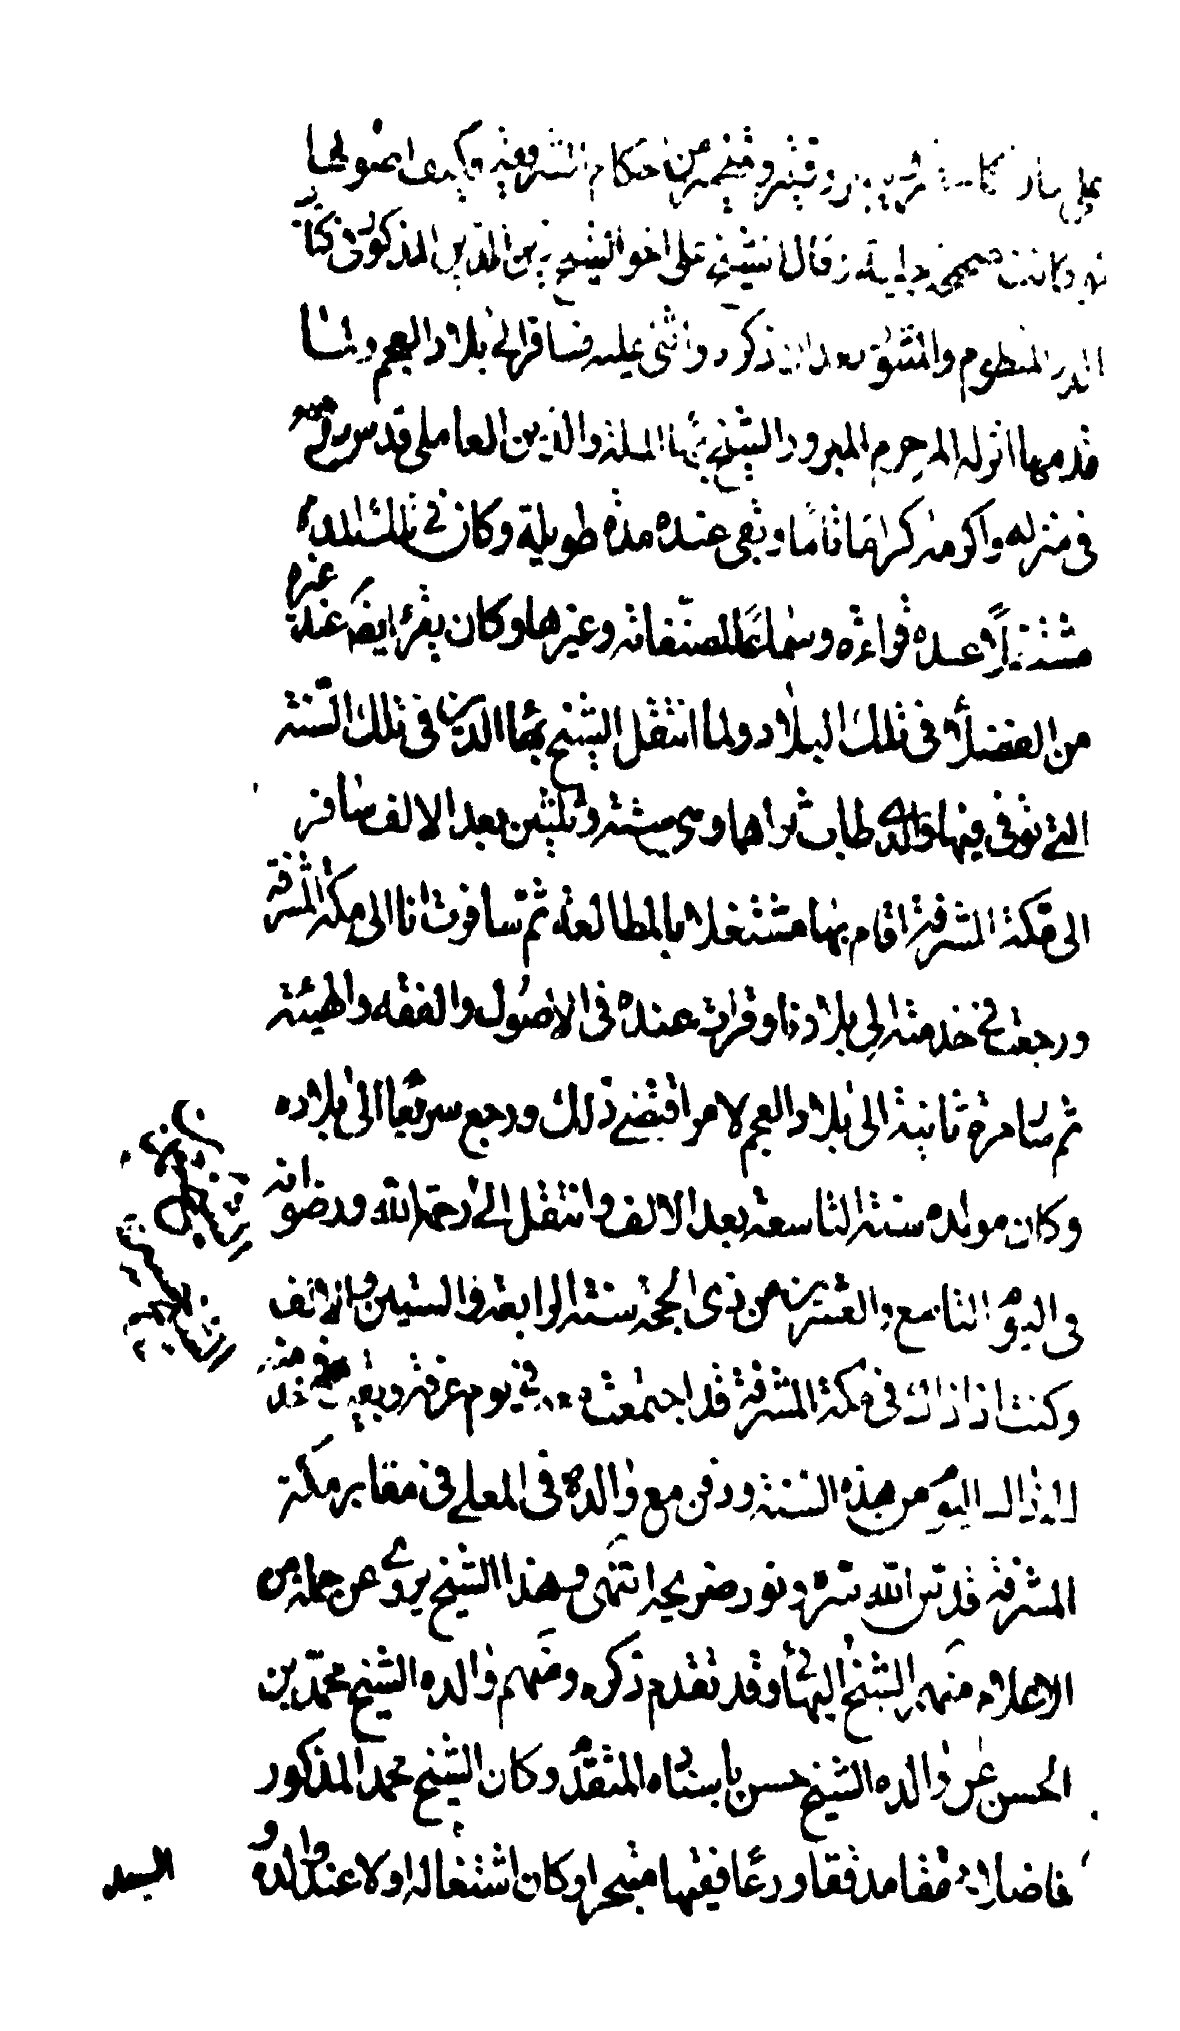 على من احكام الشرعية
كانت صحيحة وقال الشيخ على اخو الشيخ زين الدين المذكور فى كتاب
الدر المنظوم والمنثور بعد ان ذكره واثنى عليه فسافر الى بلاد العجم ولما
قدمها انزله المرحوم المبرور الشيخ بهاء الملة والدين العاملى قدس سره
فى منزله واكرمه كراما تاما وبقى عنده مدة طويلة وكان فى تلك المدة
مشتغلا عنده قراءة وسماعا لمصنفاته وغيرها وكان يقرأ ايضا عند غيره
من الفضلاء فى تلك البلاد ولما انتقل الشيخ بهاء الدين فى تلك السنة
التى توفى فيها والده طاب ثراهما وهى سنة وثلثين بعد الالف سافر
الى مكة المشرفة اقام بها مشتغلا بالمطالعة ثم سافرت انا الى مكة المشرفة
ورجعت فى خدمته الى بلادنا وقرات عنده فى الاصول والفقه والهيئة
ثم سافر مرة ثانية الى بلاد العجم لامر اقتضى ذلك ورجع سريعا الى بلاده
وكان مولده سنة التاسعة بعد الالف وانتقل الى رحمة الله ورضوانه
فى اليوم التاسع والعشرين من ذى الحجة سنة الرابعة والستين والالف
وكنت اذ ذاك فى مكة المشرفة قد اجتمعت فى يوم عرفة وبقيت فى خدمته
الى ذلك اليوم من هذه السنة ودفن مع والده فى المعلى فى مقابر مكة
المشرفة قدس الله سره ونور ضريحه انتهى وهذا الشيخ يروى عن جملة من
الاعلام منهم الشيخ البهائى وقد تقدم ذكره ومنهم والده الشيخ محمد بن
الحسن عن والده الشيخ حسن باسناده المتقدم وكان الشيخ محمد المذكور
فاضلا محققا مدققا ورعا فقيها متبحرا وكان اشتغاله اولا عند والده و
السيد